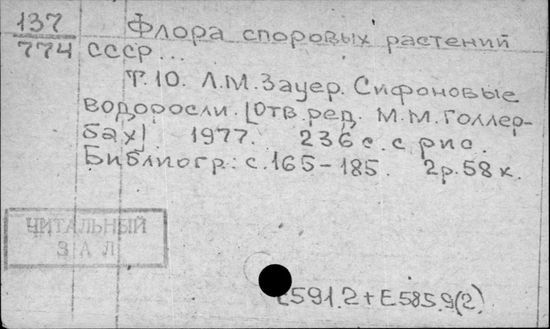 137
774
Флора споровых растений
СССР...
Т.10. Л.М.Зауер. Сифоновые
водоросли. [Отв.ред. М.М.Голлер-
бах]. 1977. 236 с. с рис.
Библиогр.: с.165-185. 2р.58 к.
ЧИТАЛЬНЫЙ
ЗАЛ
Е591.2+Е585.9(2)